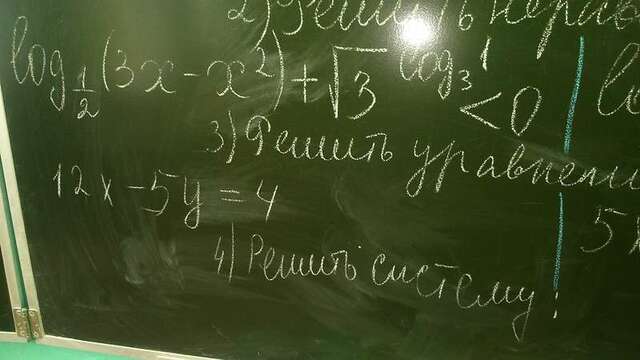 2) Решить нерав
log_{1/2}(3x-x²)+√3^{log_3 1}<0
3) Решить уравнени
12x-5y=4
5x
4) Решить систему: